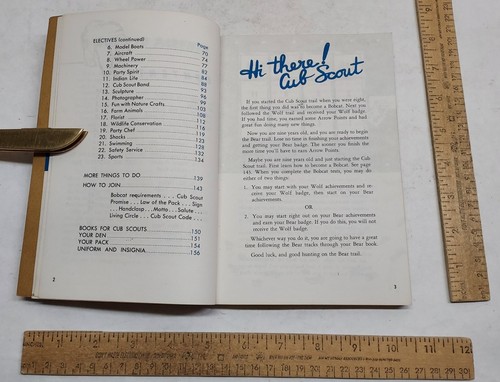 ELECTIVES (continued) Page
6. Model Boats 70
7. Aircraft 74
8. Wheel Power 77
9. Machinery 82
10. Party Spirit 84
11. Indian Life 88
12. Cub Scout Band 93
13. Sculpture 96
14. Photographer 99
15. Fun with Nature Crafts 103
16. Farm Animals 108
17. Florist 112
18. Wildlife Conservation 116
19. Party Chef 119
20. Shacks 123
21. Swimming 128
22. Safety Service 132
23. Sports 134
MORE THINGS TO DO 139
HOW TO JOIN 143
Bobcat requirements . . . Cub Scout
Promise . . . Law of the Pack . . . Sign
. . . Handclasp . . . Motto . . . Salute . . .
Living Circle . . . Cub Scout Code . . .
BOOKS FOR CUB SCOUTS 150
YOUR DEN 151
YOUR PACK 154
UNIFORM AND INSIGNIA 156
2
Hi there!
Cub Scout
If you started the Cub Scout trail when you were eight,
the first thing you did was to become a Bobcat. Next you
followed the Wolf trail and received your Wolf badge.
If you had time, you earned some Arrow Points and had
great fun doing many new things.
Now you are nine years old, and you are ready to begin
the Bear trail. Lose no time in finishing your achievements
and getting your Bear badge. The sooner you finish the
more time you'll have to earn Arrow Points.
Maybe you are nine years old and just starting the Cub
Scout trail. First learn how to become a Bobcat. See page
143. When you complete the Bobcat tests, you may do
either of two things:
1. You may start with your Wolf achievements and re-
ceive your Wolf badge, then start on your Bear
achievements.
OR
2. You may start right out on your Bear achievements
and earn your Bear badge. If you do this, you will not
receive the Wolf badge.
Whichever way you do it, you are going to have a great
time following the Bear tracks through your Bear book.
Good luck, and good hunting on the Bear trail.
3
1 2 3 4 5 6 7 8 9 10 11 12